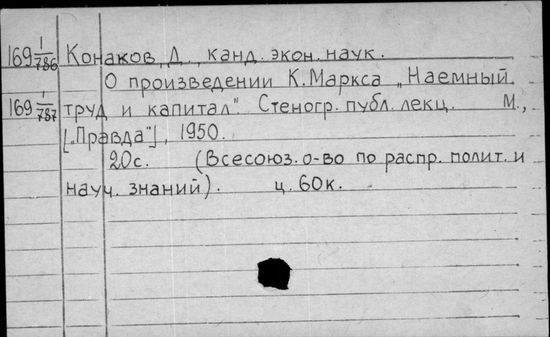 169 1/786 Конаков, Д., канд. экон. наук.
О произведении К. Маркса „Наемный
169 1/787 труд и капитал". Стеногр. публ. лекц. М.,
[„Правда"], 1950.
20с. (Всесоюз. о-во по распр. полит. и
науч. знаний). ц. 60к.